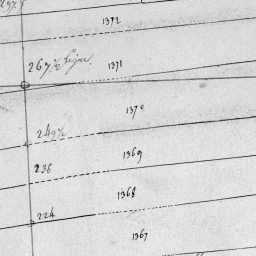 1372
267½
1371
1370
249½
1369
236
1368
224
1367